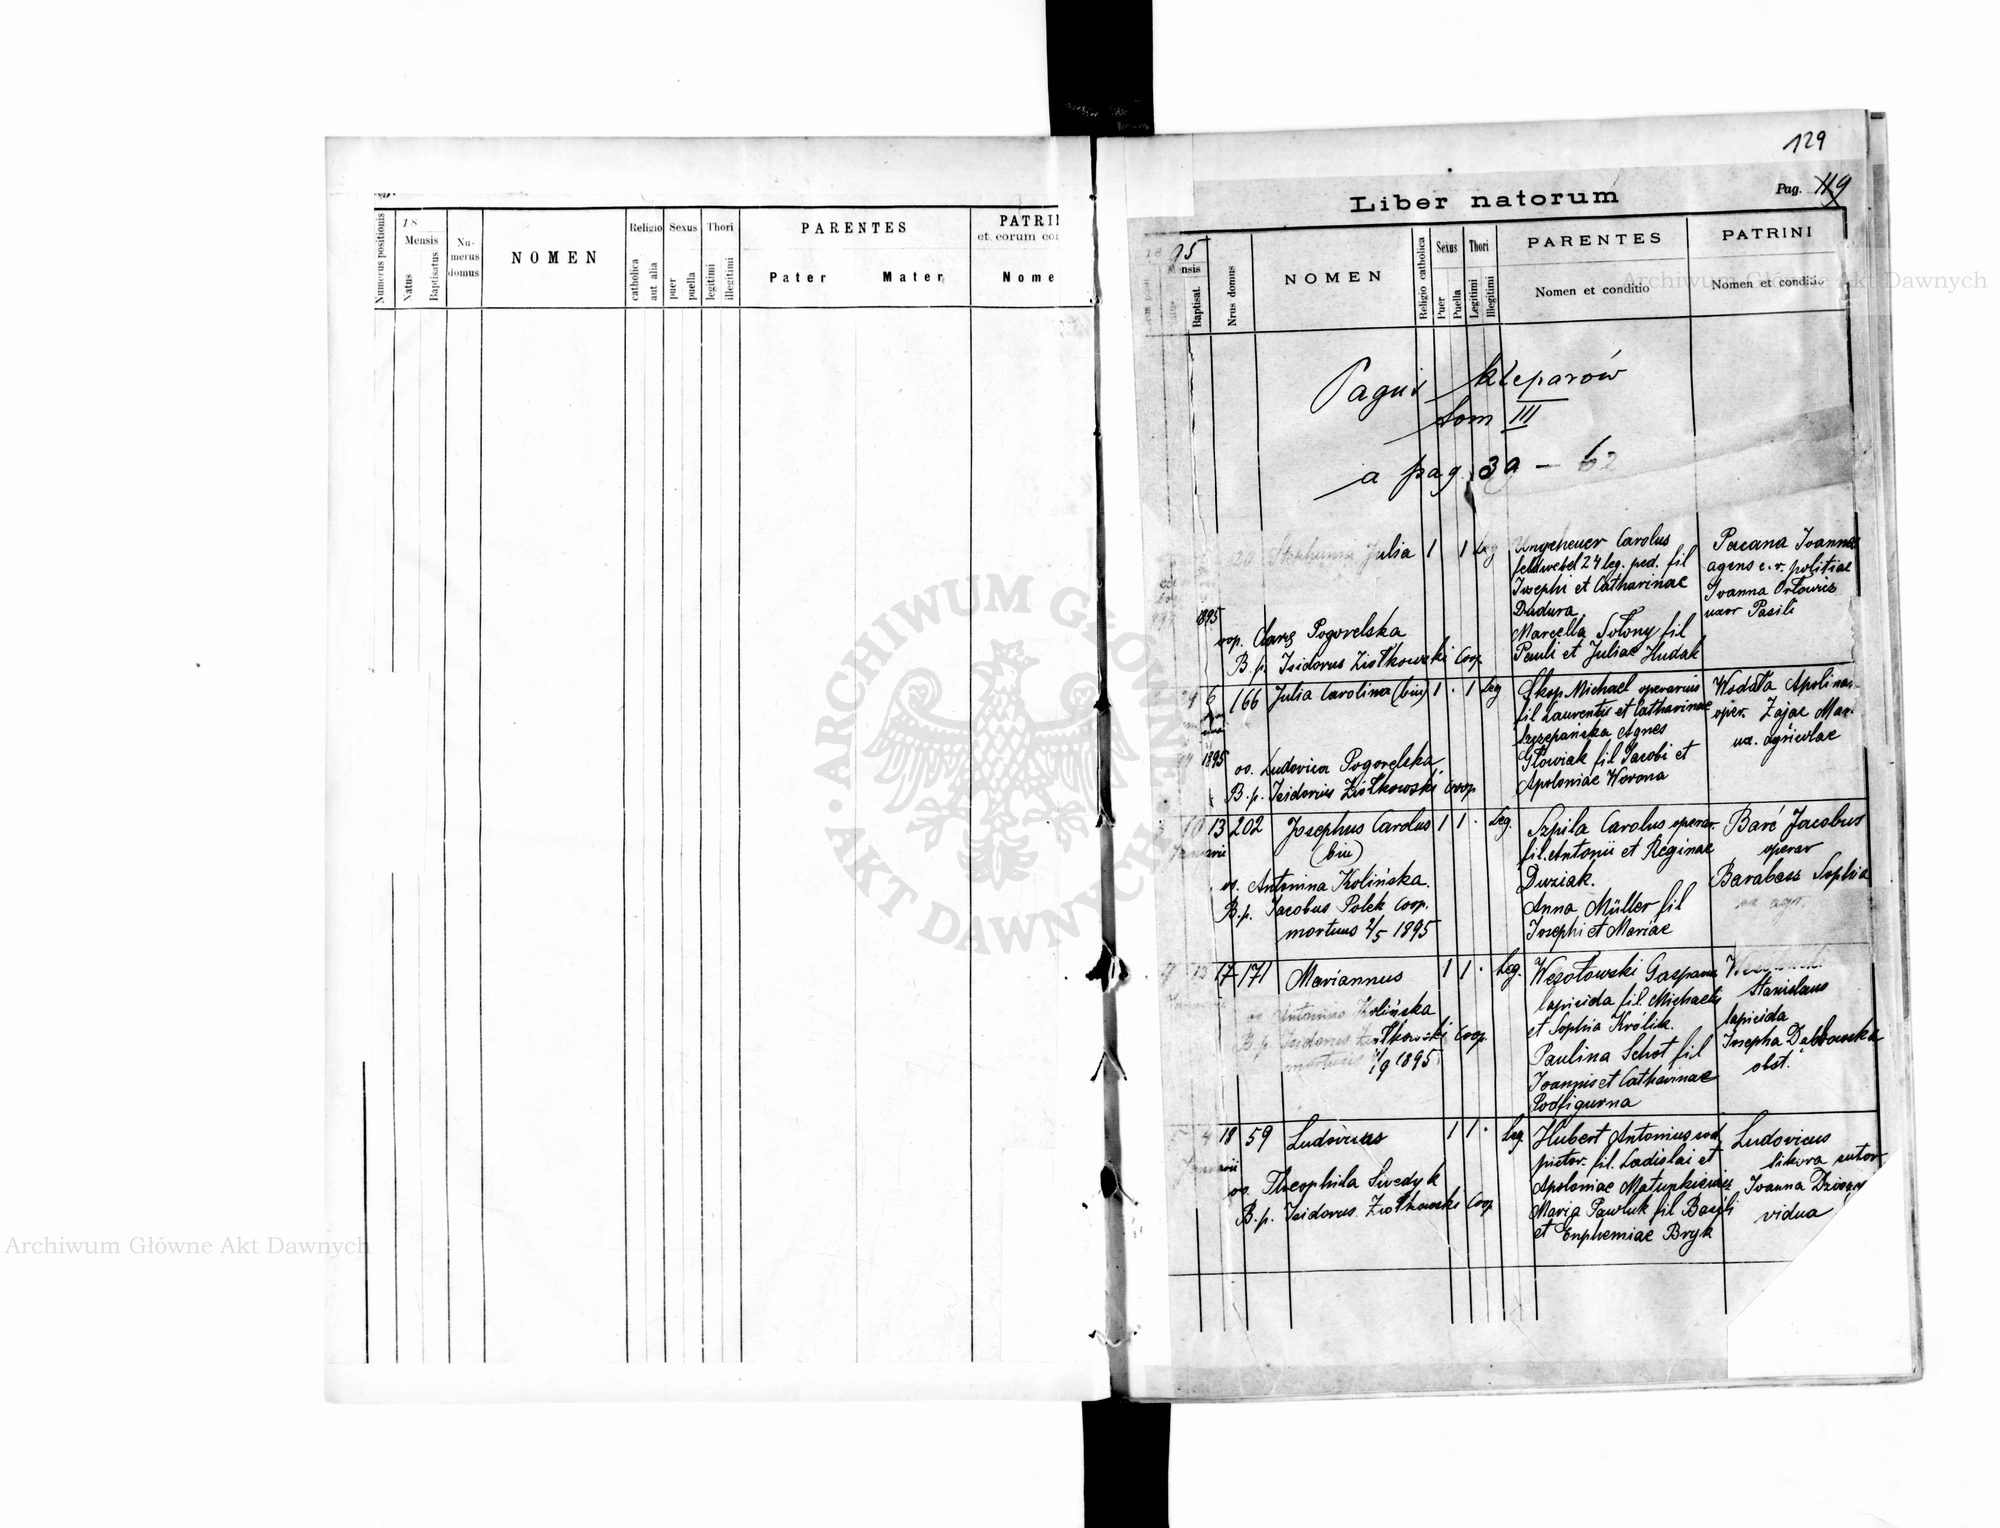 18
Numerus positionis
Mensis
Natus
Baptisatus
Nu-
merus
domus
NOMEN
Religio
catholica
aut alia
Sexus
puer
puella
Thori
legitimi
illegitimi
PARENTES
Pater Mater
PATRI
et eorum con
Nome
129
Liber natorum
Pag. 119
1895
Mensis
Baptisat.
Nrus domus
NOMEN
Religio catholica
Sexus
Puer
Puella
Thori
Legitimi
Illegitimi
PARENTES
Nomen et conditio
PATRINI
Nomen et conditio
Pagus Kleparów
tom III
a pag. 39 — 62
120 Stephania Julia 1 1 Leg
Ungeheuer Carolus
feldwebel 24 leg. ped. fil
Josephi et Catharinae
Dudura
Marcella Sołony fil
Pauli et Juliae Hudak
Pacana Joannes
agens c. r. politiae
Joanna Orłowicz
uxor Pasili
1895
oop. Clara Pogorelska
B. p. Isidorus Ziołkowski Coop
6 166 Julia Carolina (bin) 1 . 1 Leg
1895
oo. Ludovica Pogorelska
B. p. Isidorus Ziołkowski Coop
Skop Michael operarius
fil Laurentii et Catharinae
Szczepańska Agnes
Głowiak fil Jacobi et
Apoloniae Worona
Wodała Apolinar
oper. Zając Mar.
ux. agricolae
10 13 202 Josephus Carolus 1 1 . Leg.
Januarii
(bin)
oo. Antonina Kolińska.
B. p. Jacobus Polek Coop.
mortuus 2/5 1895
Szpila Carolus operar.
fil. Antonii et Reginae
Duziak.
Anna Müller fil
Josephi et Mariae
Barć Jacobus
operar
Barabasz Sophia
ux agr.
13 17 171 Mariannus 1 1 . Leg.
oo. Antonina Kolińska
B. p. Isidorus Ziołkowski Coop.
mortuus 1/9 1895
Wesołowski Gasparus
lapicida fil. Michaelis
et Sophia Królik.
Paulina Schot fil
Joannis et Catharinae
Podfigurna
Stanislaus
lapicida
Josepha Dąbrowska
obst.
5 4 18 59 Ludovicus 1 1 . Leg.
Januarii
oo. Theophila Siwedyk
B. p. Isidorus Ziołkowski Coop
Hubert Antonius sod
pictor. fil. Ladislai et
Apoloniae Matupkiewicz
Maria Pawluk fil Basili
et Euphemiae Bryk
Ludovicus
Sikora sutor
Joanna
vidua
ARCHIWUM GŁÓWNE AKT DAWNYCH
Archiwum Główne Akt Dawnych
Archiwum Główne Akt Dawnych